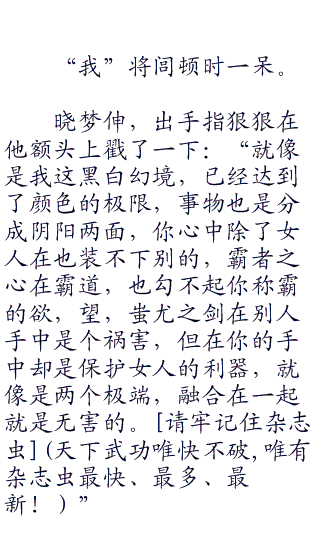 “我”将闾顿时一呆。
晓梦伸，出手指狠狠在
他额头上戳了一下：“就像
是我这黑白幻境，已经达到
了颜色的极限，事物也是分
成阴阳两面，你心中除了女
人在也装不下别的，霸者之
心在霸道，也勾不起你称霸
的欲，望，蚩尤之剑在别人
手中是个祸害，但在你的手
中却是保护女人的利器，就
像是两个极端，融合在一起
就是无害的。[请牢记住杂志
虫](天下武功唯快不破,唯有
杂志虫最快、最多、最
新！）”